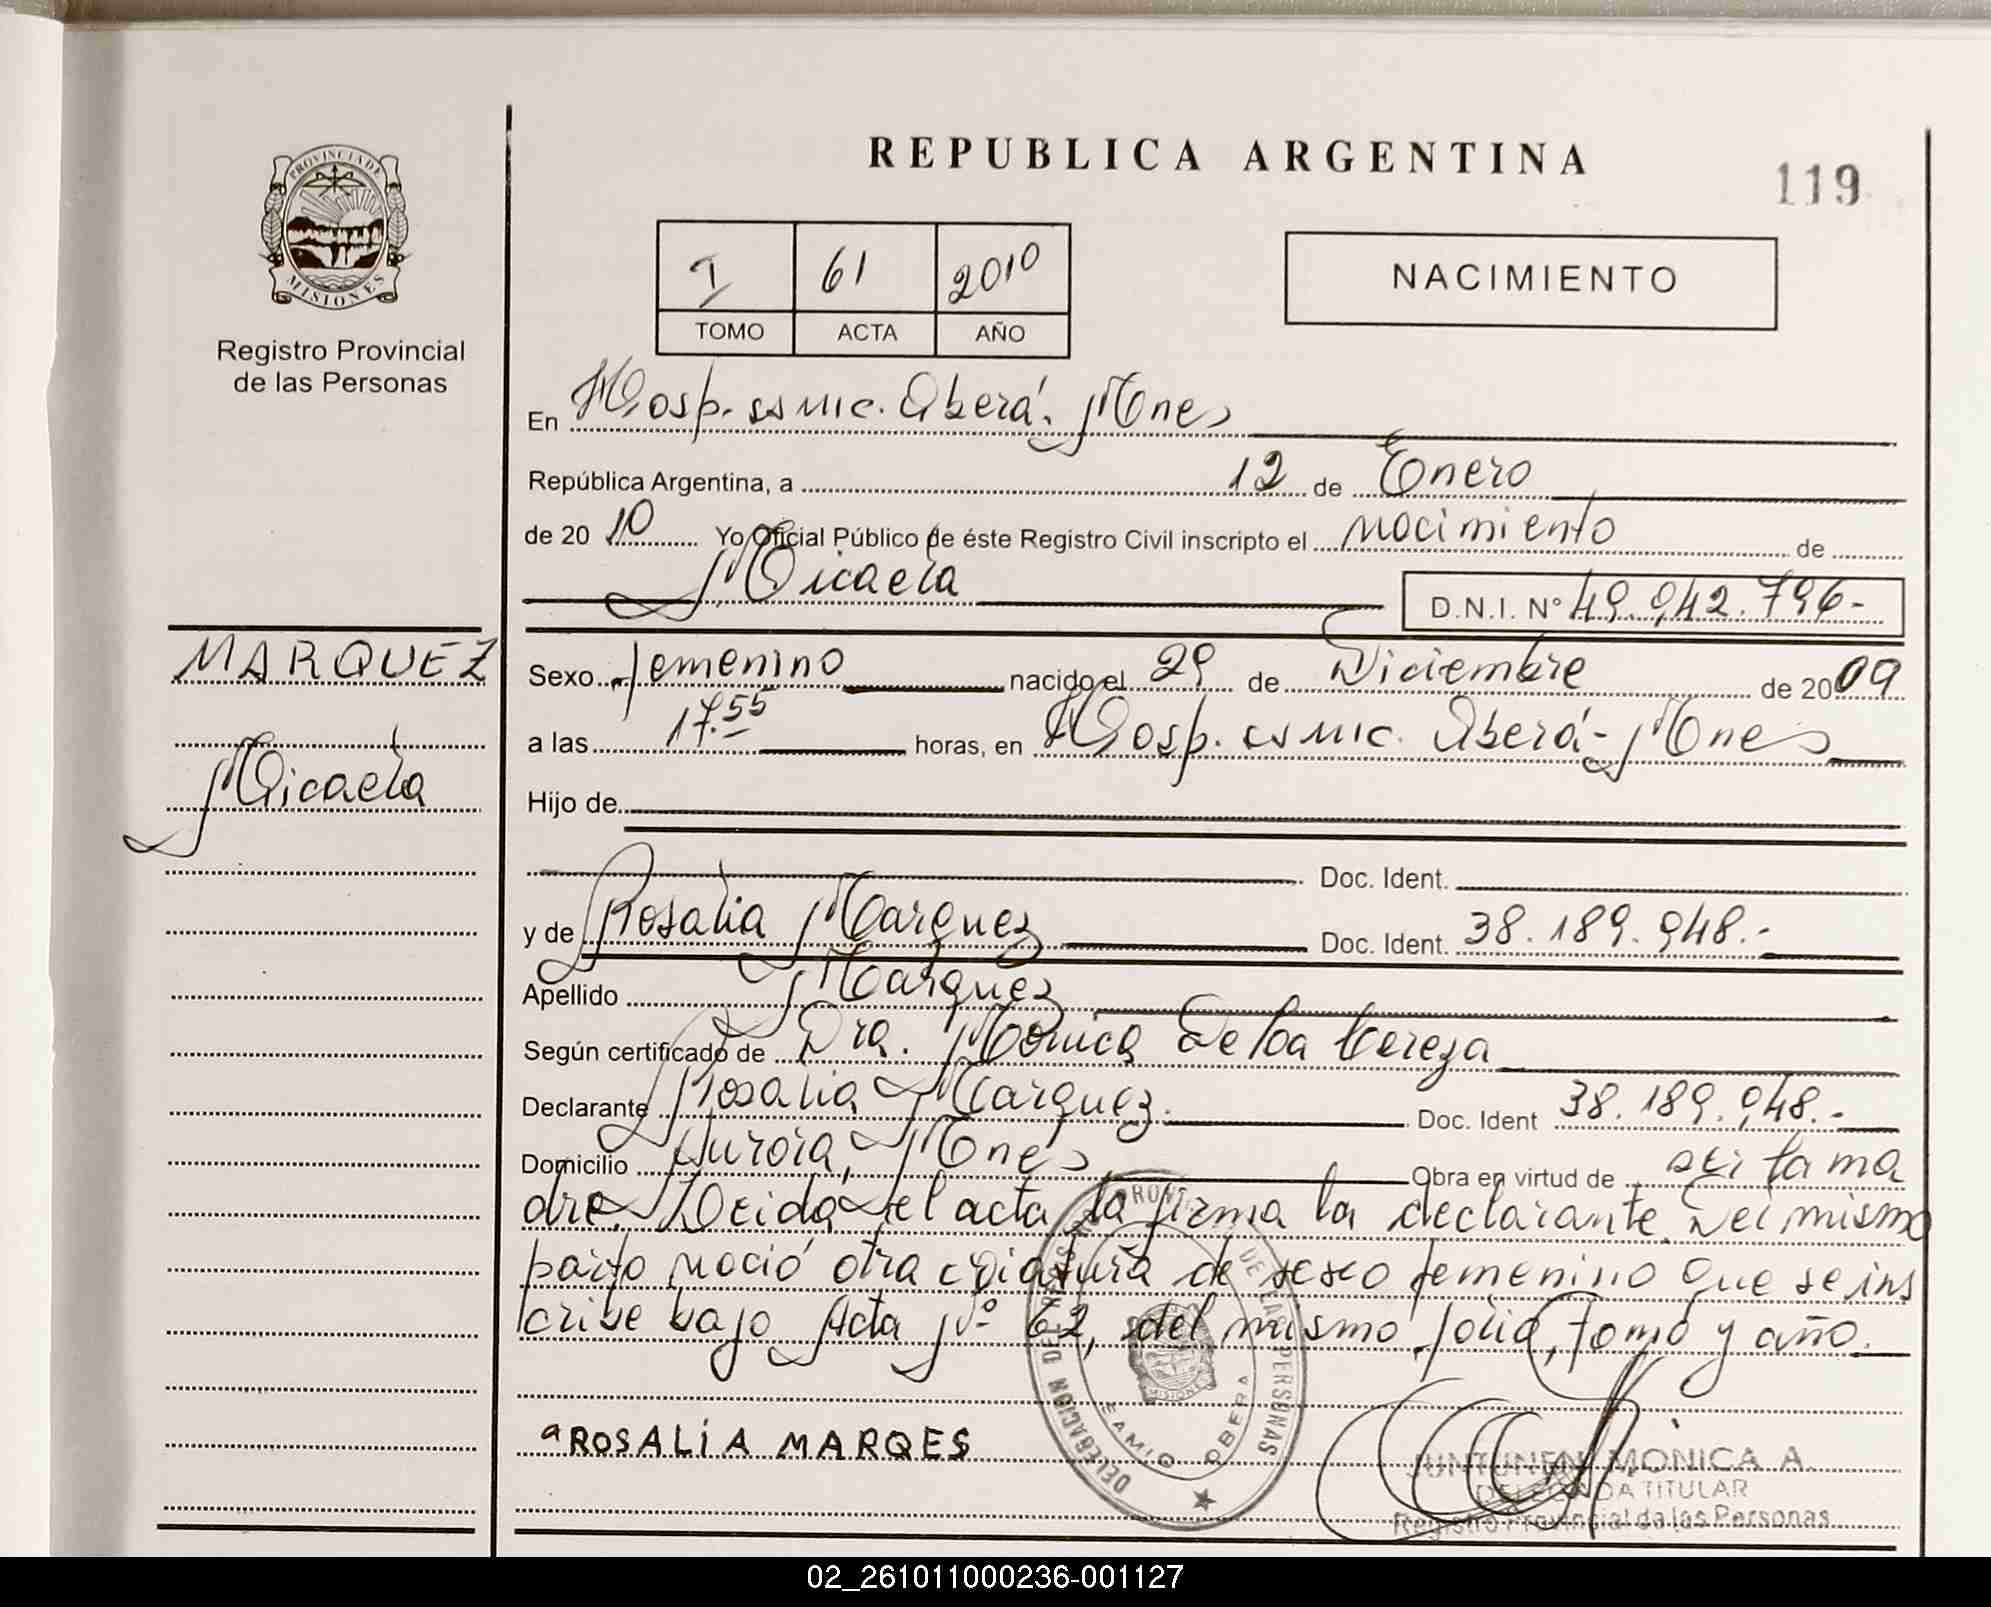 REPUBLICA ARGENTINA
119
PROVINCIA DE
MISIONES
Registro Provincial
de las Personas
I 61 2010
TOMO ACTA AÑO
NACIMIENTO
En Hosp. ss mic. Oberá. Mnes
República Argentina, a 12 de Enero
de 2010 Yo Oficial Público de éste Registro Civil inscripto el nacimiento de
Micaela D.N.I. Nº 49.942.796.-
MARQUEZ
Micaela
Sexo femenino nacido el 29 de Diciembre de 2009
a las 17.55 horas, en Hosp. ss mic. Oberá - Mnes
Hijo de
Doc. Ident.
y de Rosalia Marquez Doc. Ident. 38.189.948.-
Apellido Marquez
Según certificado de Dra. Mónica De
Declarante Rosalia Marquez. Doc. Ident 38.189.948.-
Domicilio Aurora, Mnes Obra en virtud de ser la ma
dre. Leida el acta la firma la declarante. Del mismo
parto nació otra criatura de sexo femenino que se ins
cribe bajo Acta Nº 62, del mismo folio, tomo y año.
ROSALÍA MARQES
DELEGACION DEL REGISTRO PROV. DE LAS PERSONAS
OBERA
JUNTUNEN MONICA A.
DELEGADA TITULAR
Registro Provincial de las Personas
02_261011000236-001127